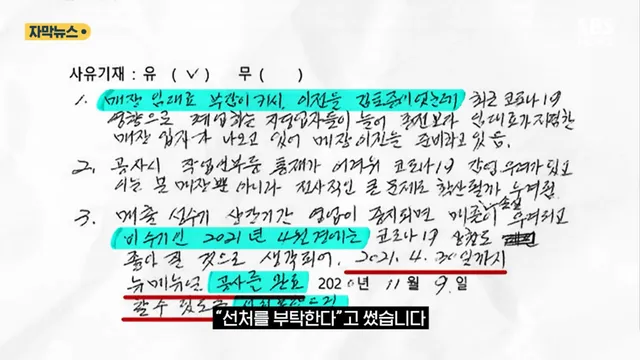 자막뉴스
KBS
사유기재 : 유 ( V ) 무 ( )
1. 매장 임대료 부담이 커서, 이전을 검토중이었는데 최근 코로나19
영향으로 폐업하는 자영업자들이 늘어 종전보다 임대료가 저렴한
매장 입지가 나오고 있어 매장 이전을 준비하고 있음.
2. 공사시 작업인부등 통제가 어려워 코로나19 감염 우려가 되고
이는 본 매장뿐 아니라 전사적인 큰 문제로 확산될까 우려됨
3. 매출 성수기 상각기간 영업이 중지되면 매출이 우려되고
손실
비수기인 2021년 4월경에는 코로나19 상황도
좋아 질 것으로 생각되어. 2021. 4. 30일까지
뉴메뉴얼 공사를 완료 2020년 11월 9일
할 수 있도록
“선처를 부탁한다”고 썼습니다